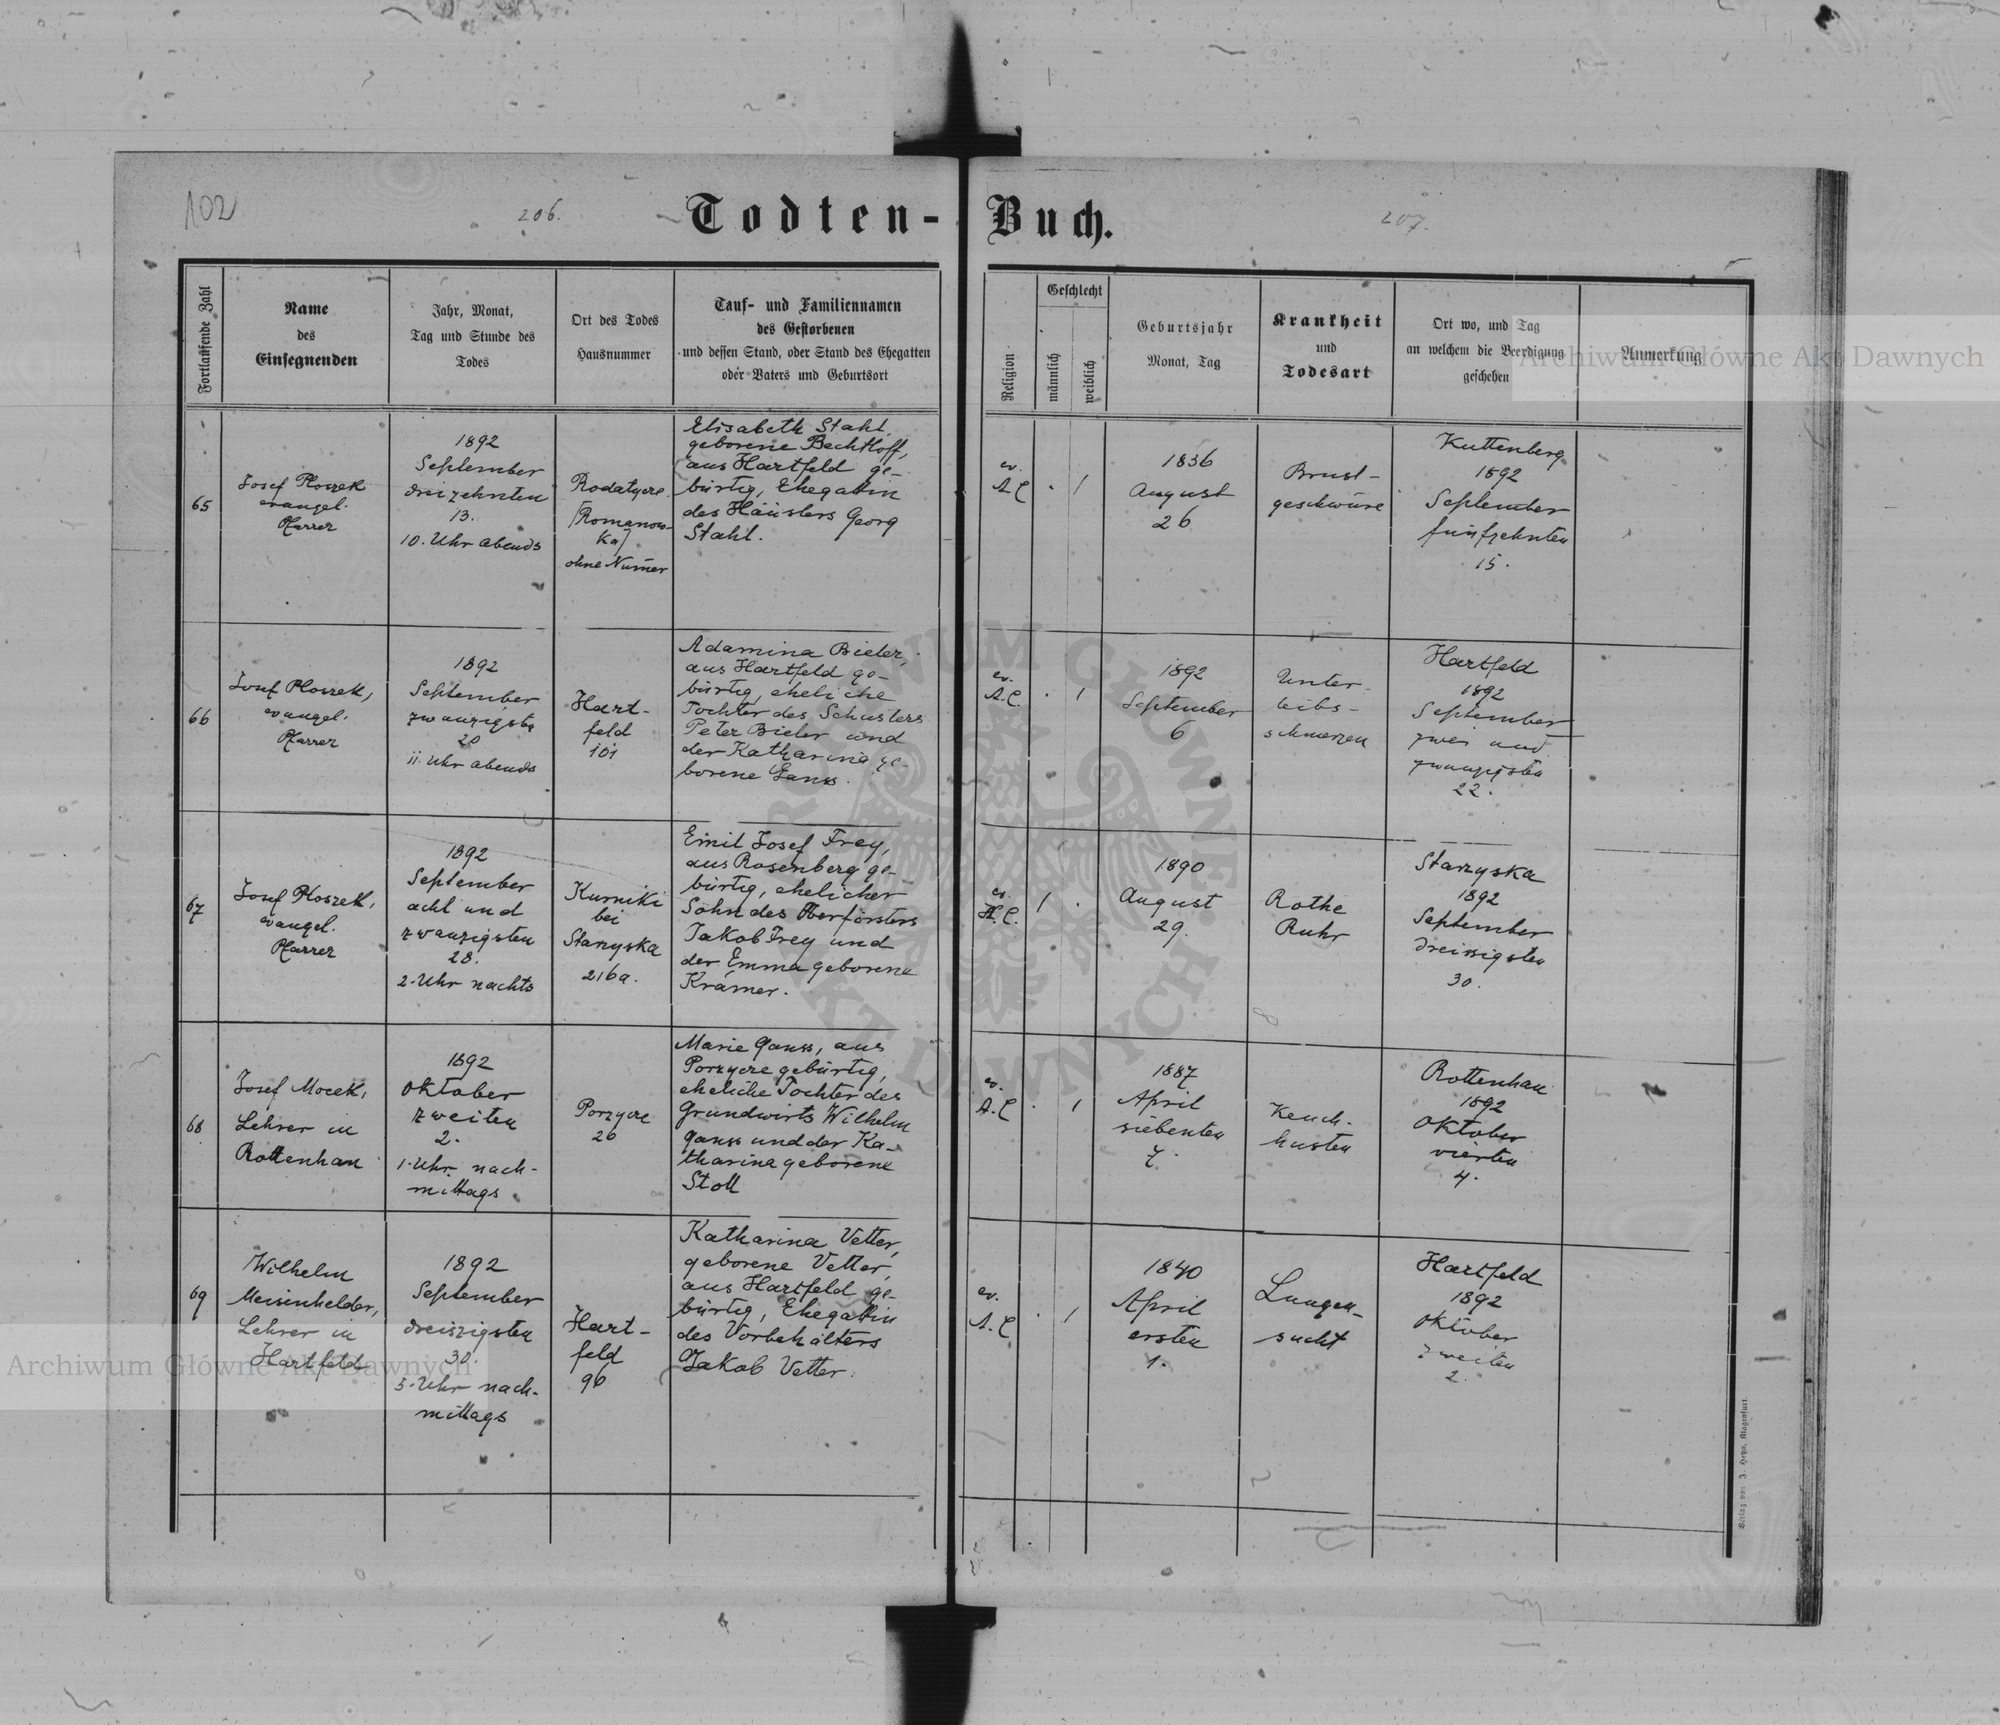 102
206.
Todten-Buch.
207.
Fortlaufende Zahl
Name
des
Einsegnenden
Jahr, Monat,
Tag und Stunde des
Todes
Ort des Todes
Hausnummer
Tauf- und Familiennamen
des Gestorbenen
und dessen Stand, oder Stand des Ehegatten
oder Vaters und Geburtsort
Religion
Geschlecht
männlich
weiblich
Geburtsjahr
Monat, Tag
Krankheit
und
Todesart
Ort wo, und Tag
an welchem die Beerdigung
geschehen
Anmerkung
Archiwum Główne Akt Dawnych
65
Josef Ploszek
evangel.
Pfarrer
1892
September
dreizehnten
13.
10. Uhr abends
Rodatycze
/Romanow-
ka/
ohne Numer
Elisabeth Stahl,
geborene Bechtloff,
aus Hartfeld ge-
bürtig, Ehegattin
des Häuslers Georg
Stahl.
ev.
A.C
1
1836
August
26
Brust-
geschwüre
Kuttenberg
1892
September
fünfzehnten
15.
66
Josef Ploszek,
evangel.
Pfarrer
1892
September
zwanzigste
20
11. Uhr abends
Hart-
feld
101
Adamina Bieler,
aus Hartfeld ge-
bürtig, eheliche
Tochter des Schusters
Peter Bieler und
der Katharina ge-
borene Ganss.
ev.
A.C.
1
1892
September
6
Unter-
leibs-
schmerzen
Hartfeld
1892
September
zwei und
zwanzigsten
22.
67
Josef Ploszek,
evangel.
Pfarrer
1892
September
acht und
zwanzigsten
28.
2. Uhr nachts
Kurniki
bei
Starzyska
216a.
Emil Josef Frey,
aus Rosenberg ge-
bürtig, ehelicher
Sohn des Oberförsters
Jakob Frey und
der Emma geborene
Krämer.
ev.
H.C.
1
1890
August
29.
Rothe
Ruhr
Starzyska
1892
September
dreissigsten
30.
68
Josef Mocek,
Lehrer in
Rottenhan
1892
Oktober
zweiten
2.
1. Uhr nach-
mittags
Porzycze
26
Marie Ganss, aus
Porzycze gebürtig,
eheliche Tochter des
Grundwirts Wilhelm
Ganss und der Ka-
tharina geborene
Stoll
ev.
A.C
1
1887
April
siebenten
7.
Keuch-
husten
Rottenhan
1892
Oktober
vierten
4.
69
Wilhelm
Meisenhelder,
Lehrer in
Hartfeld
1892
September
dreiszigsten
30.
5. Uhr nach-
mittags
Hart-
feld
96
Katharina Vetter,
geborene Vetter,
aus Hartfeld ge-
bürtig, Ehegattin
des Vorbehälters
Jakob Vetter.
ev.
A.C
1
1840
April
ersten
1.
Lungen-
sucht
Hartfeld
1892
Oktober
zweiten
2.
Archiwum Główne Akt Dawnych
ARCHIWUM GŁÓWNE AKT DAWNYCH
Verlag von J. Heyn, Klagenfurt.